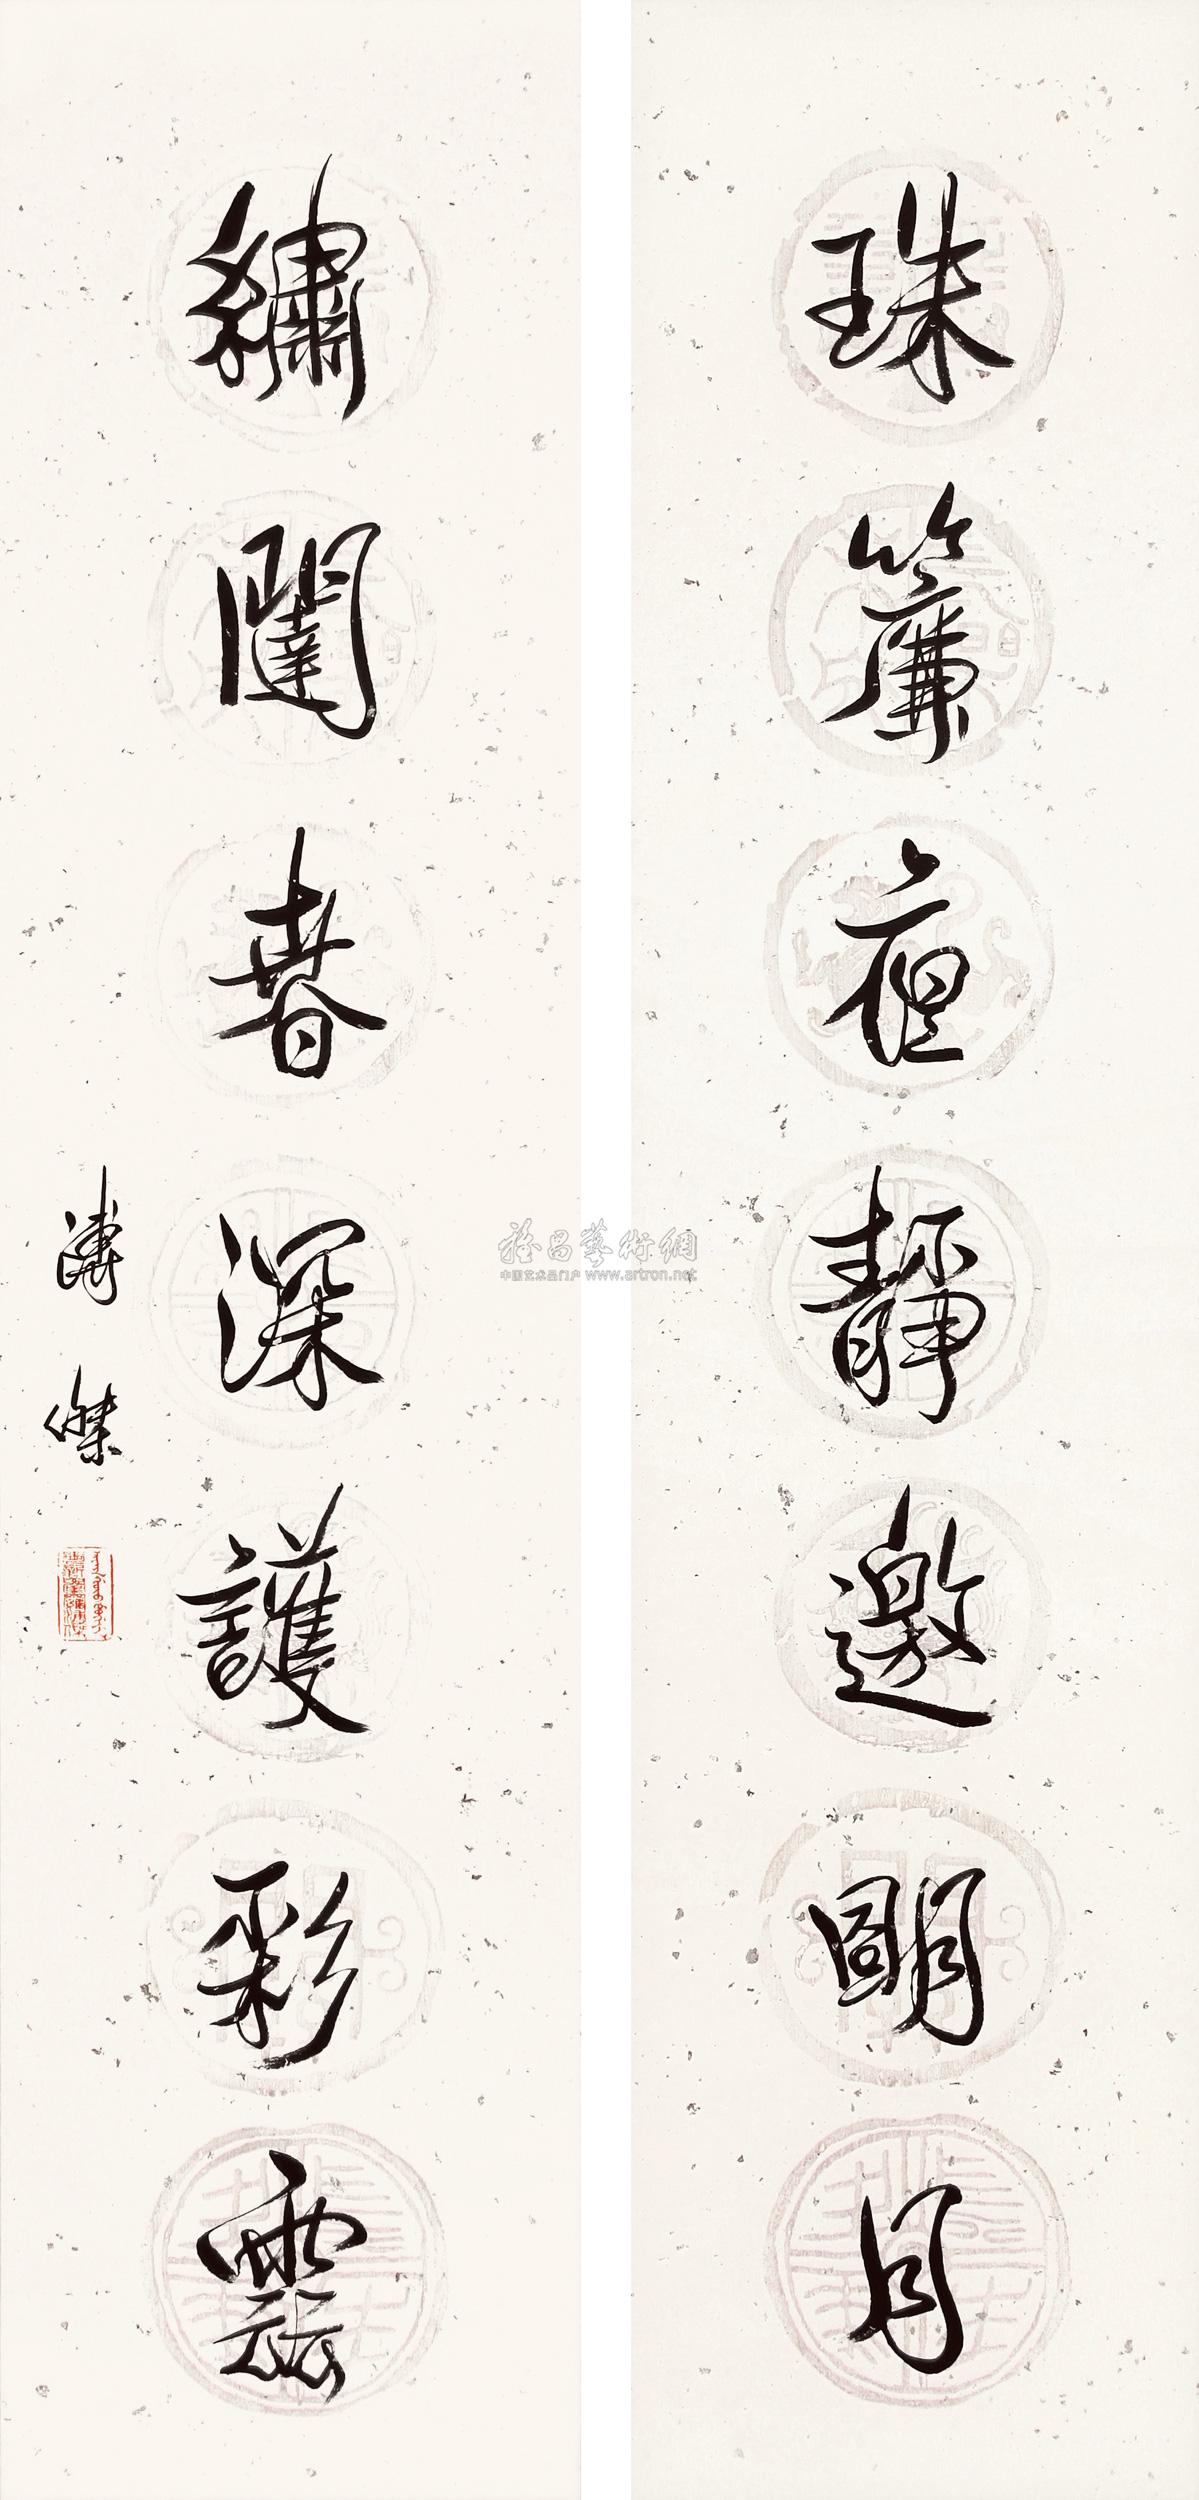 珠簾夜靜邀明月
繡闥春深護彩雲
溥傑
中国艺术品门户 www.artron.net